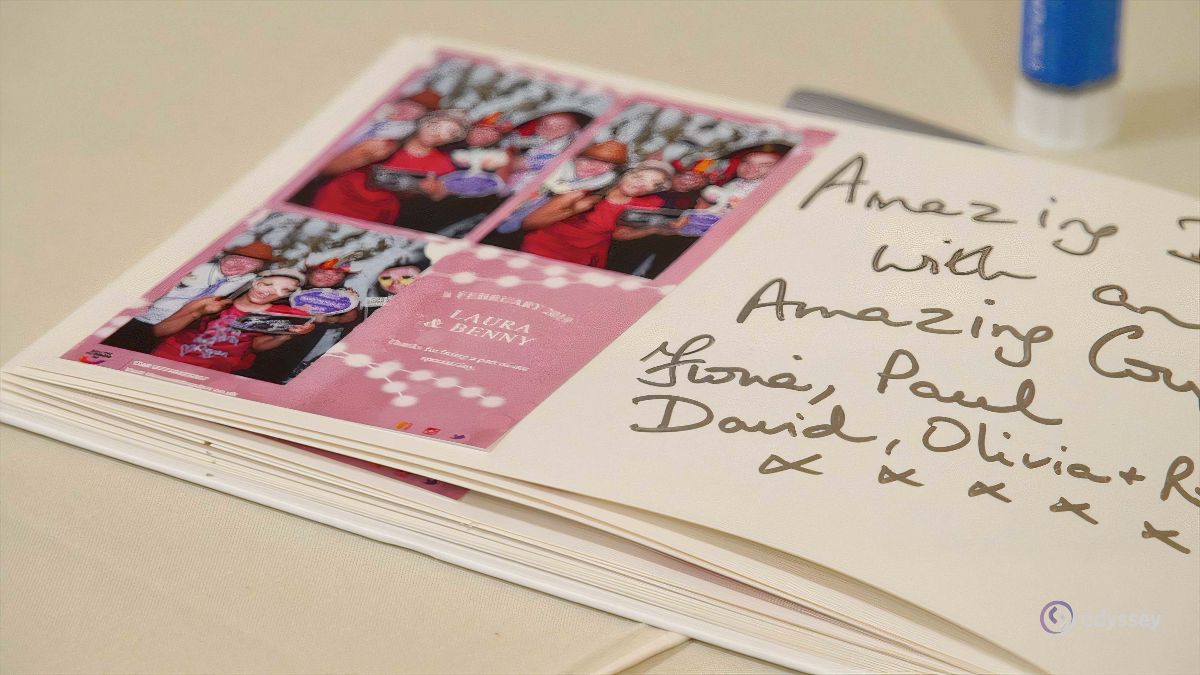 FEBRUARY 2019
LAURA
& BENNY
Thanks for being a part of our
special day.
Amazing
with an
Amazing Cou
Fiona, Paul
David, Olivia + Ro
x x x x x
odyssey